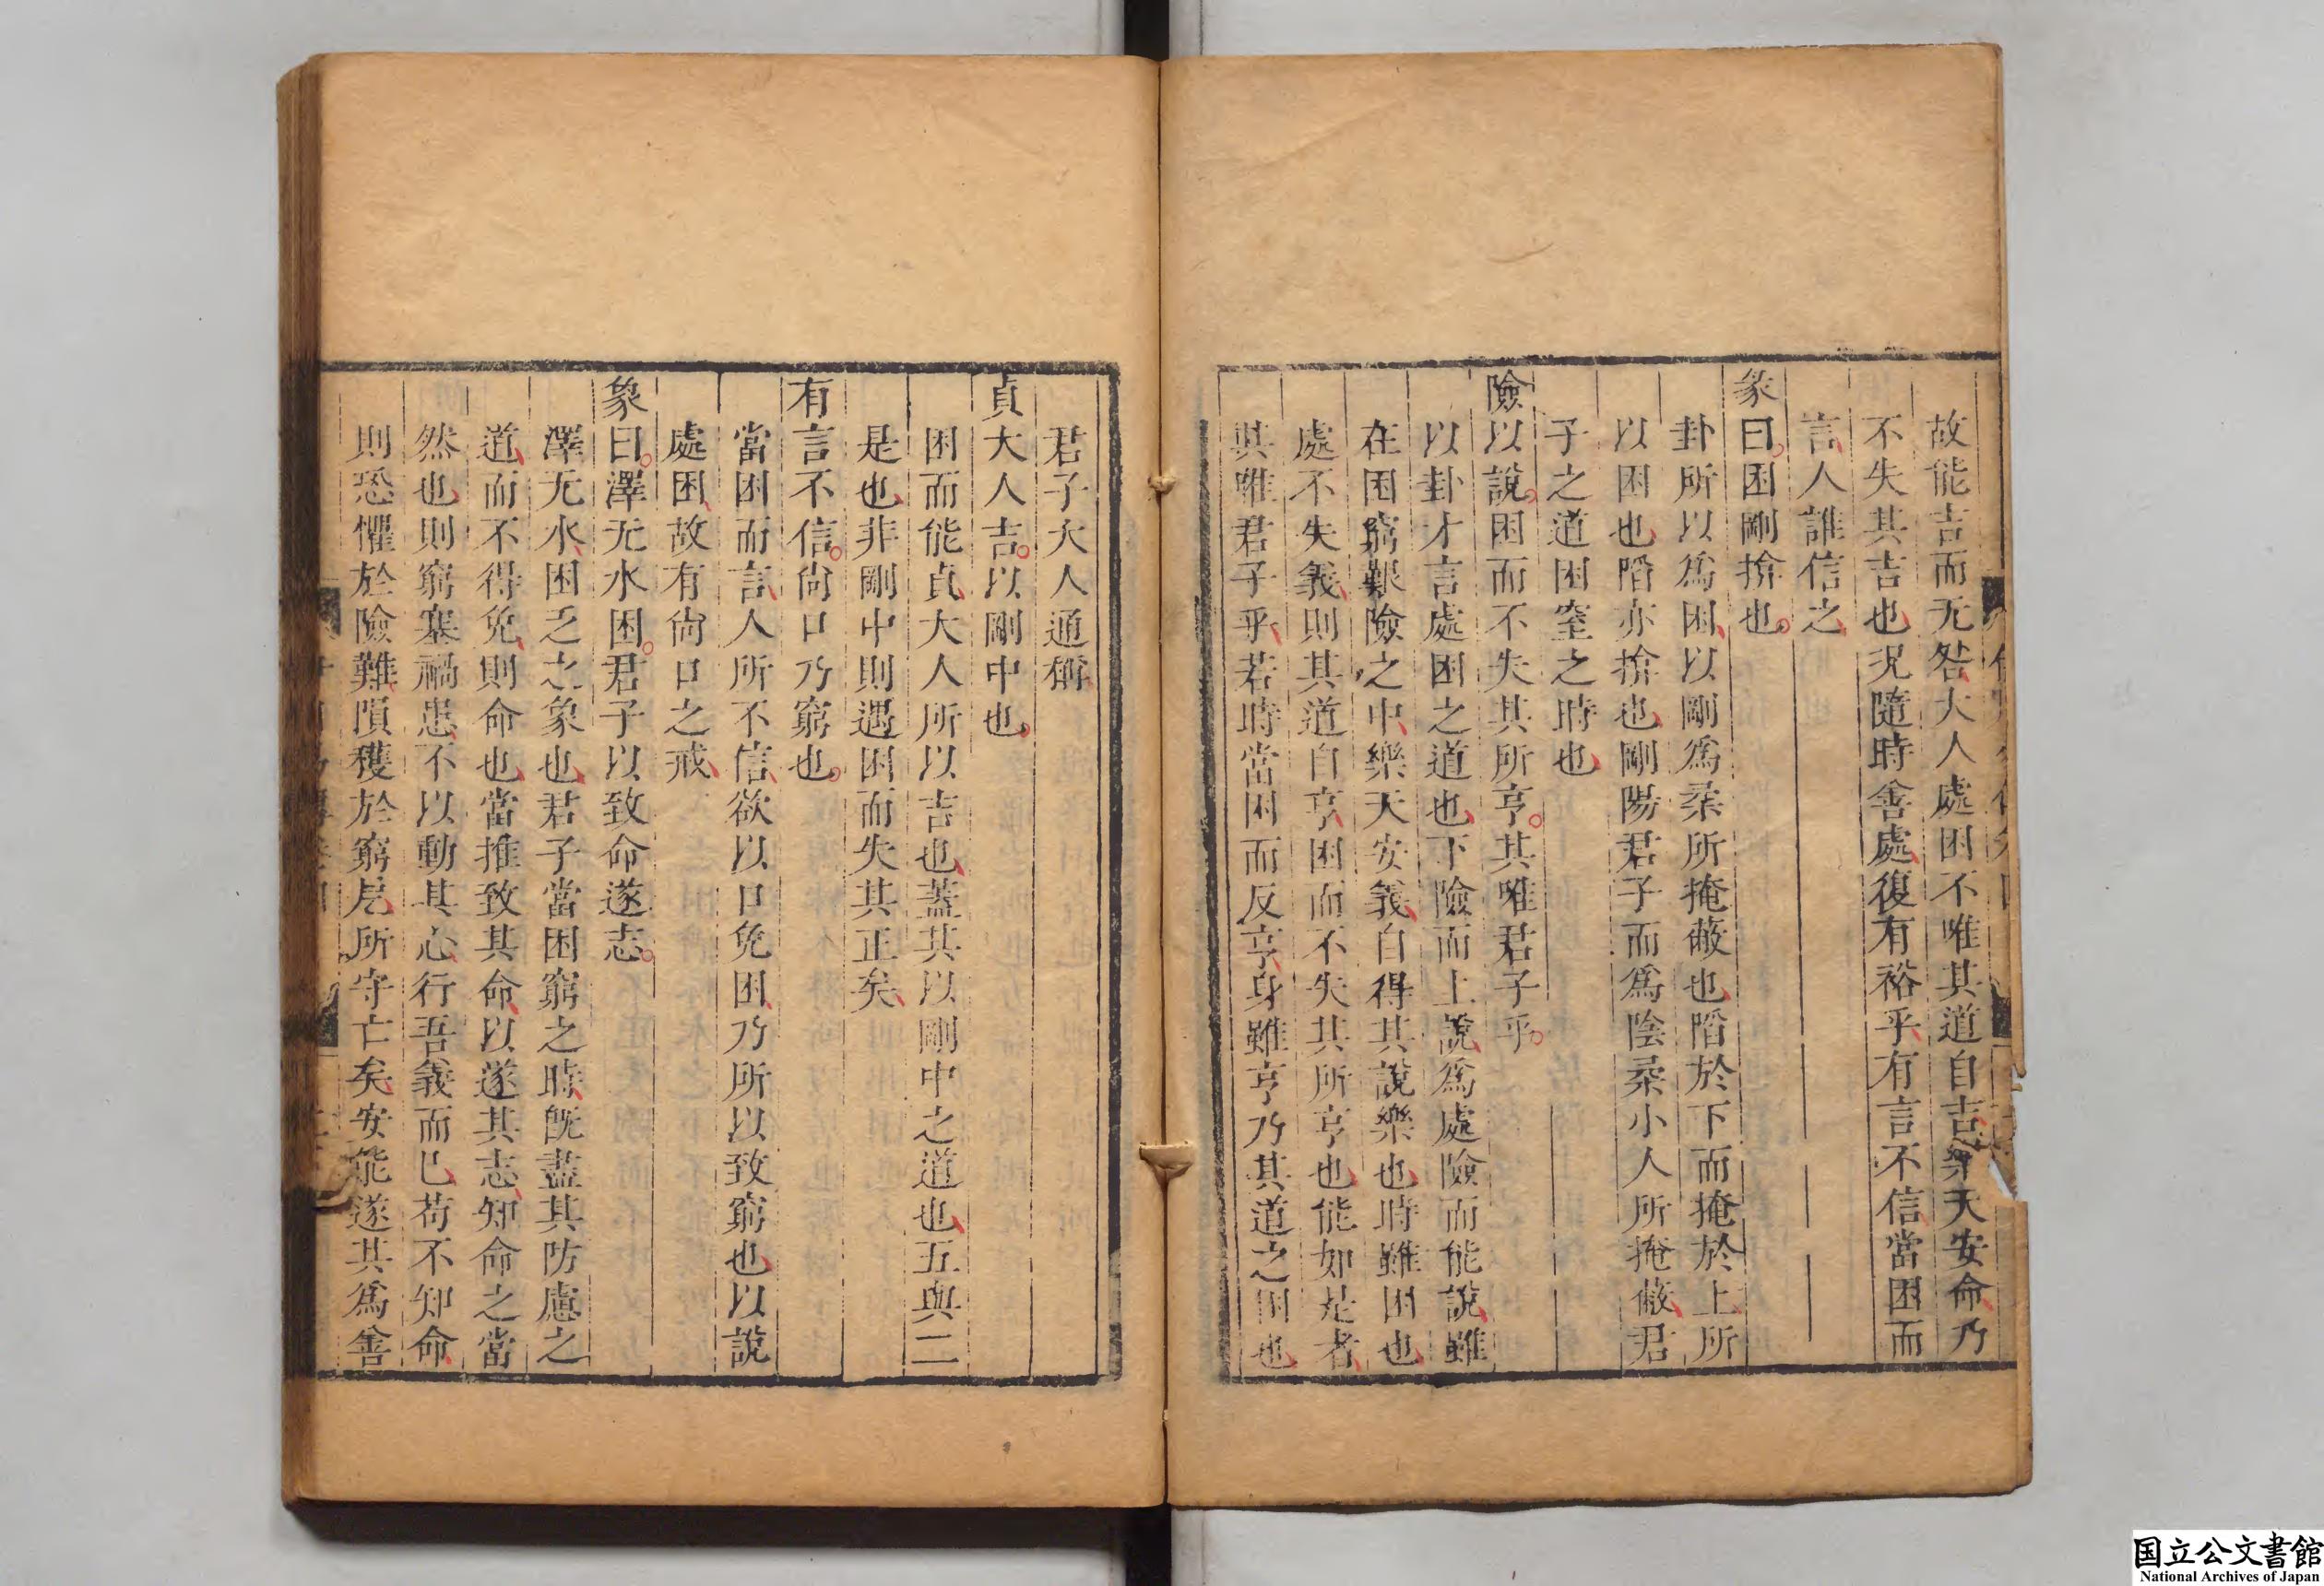 故能吉而无咎大人處困不唯其道自吉樂天安命乃
不失其吉也況隨時善處復有裕乎有言不信當困而
言人誰信之
彖曰困剛揜也
卦所以爲困以剛爲柔所掩蔽也陷於下而掩於上所
以困也陷亦揜也剛陽君子而爲陰柔小人所掩蔽君
子之道困窒之時也
險以說困而不失其所亨其唯君子乎
以卦才言處困之道也下險而上說爲處險而能說雖
在困窮艱險之中樂天安義自得其說樂也時雖困也
處不失義則其道自亨困而不失其所亨也能如是者
其唯君子乎若時當困而反亨身雖亨乃其道之困也
君子大人通稱
貞大人吉以剛中也
困而能貞大人所以吉也蓋其以剛中之道也五與二
是也非剛中則遇困而失其正矣
有言不信尚口乃窮也
當困而言人所不信欲以口免困乃所以致窮也以說
處困故有尚口之戒
象曰澤无水困君子以致命遂志
澤无水困乏之象也君子當困窮之時旣盡其防慮之
道而不得免則命也當推致其命以遂其志知命之當
然也則窮塞禍患不以動其心行吾義而已苟不知命
則恐懼於險難隕穫於窮戹所守亡矣安能遂其爲善
国立公文書館
National Archives of Japan